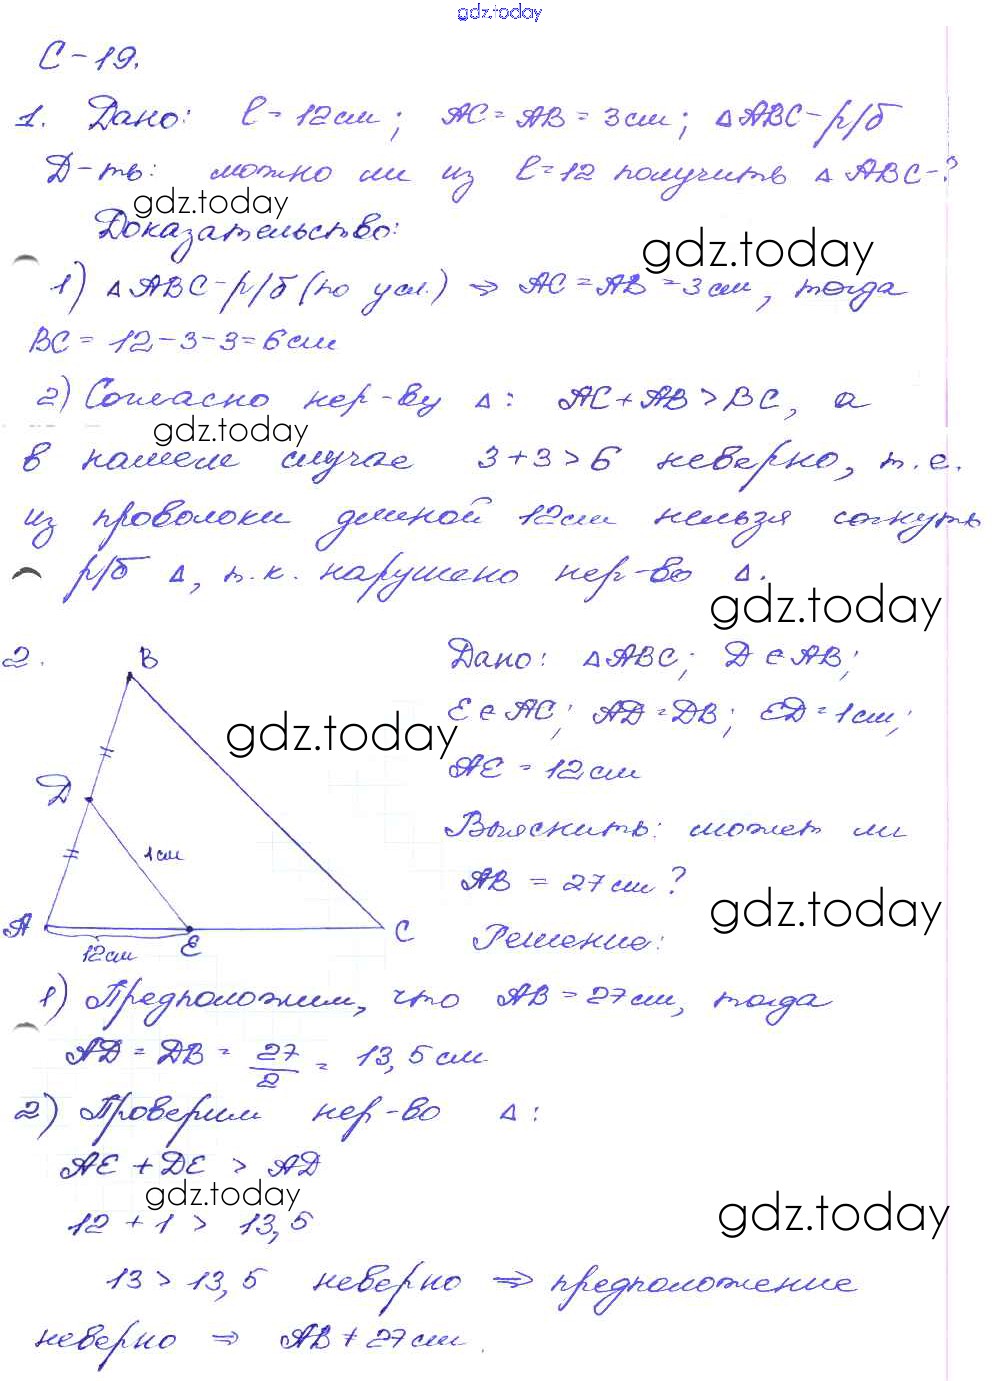 gdz.today
С-19.
1. Дано: l = 12 см; AC = AB = 3 см; △ABC - р/б
Д-ть: можно ли из l = 12 получить △ ABC - ?
gdz.today
Доказательство:
gdz.today
1) △ ABC - р/б (по усл.) ⇒ AC = AB = 3 см, тогда
BC = 12 - 3 - 3 = 6 см
2) Согласно нер-ву △: AC + AB > BC, а
gdz.today
в нашем случае 3 + 3 > 6 неверно, т.е.
из проволоки длиной 12 см нельзя согнуть
р/б △, т.к. нарушено нер-во △.
gdz.today
2. B
Дано: △ABC; D ∈ AB;
E ∈ AC; AD = DB; ED = 1 см;
gdz.today
AE = 12 см
D
Выяснить: может ли
1 см
AB = 27 см?
gdz.today
A E C
12 см
Решение:
1) Предположим, что AB = 27 см, тогда
AD = DB = 27/2 = 13,5 см
2) Проверим нер-во △:
AE + DE > AD
gdz.today
gdz.today
12 + 1 > 13,5
13 > 13,5 неверно ⇒ предположение
неверно ⇒ AB ≠ 27 см.